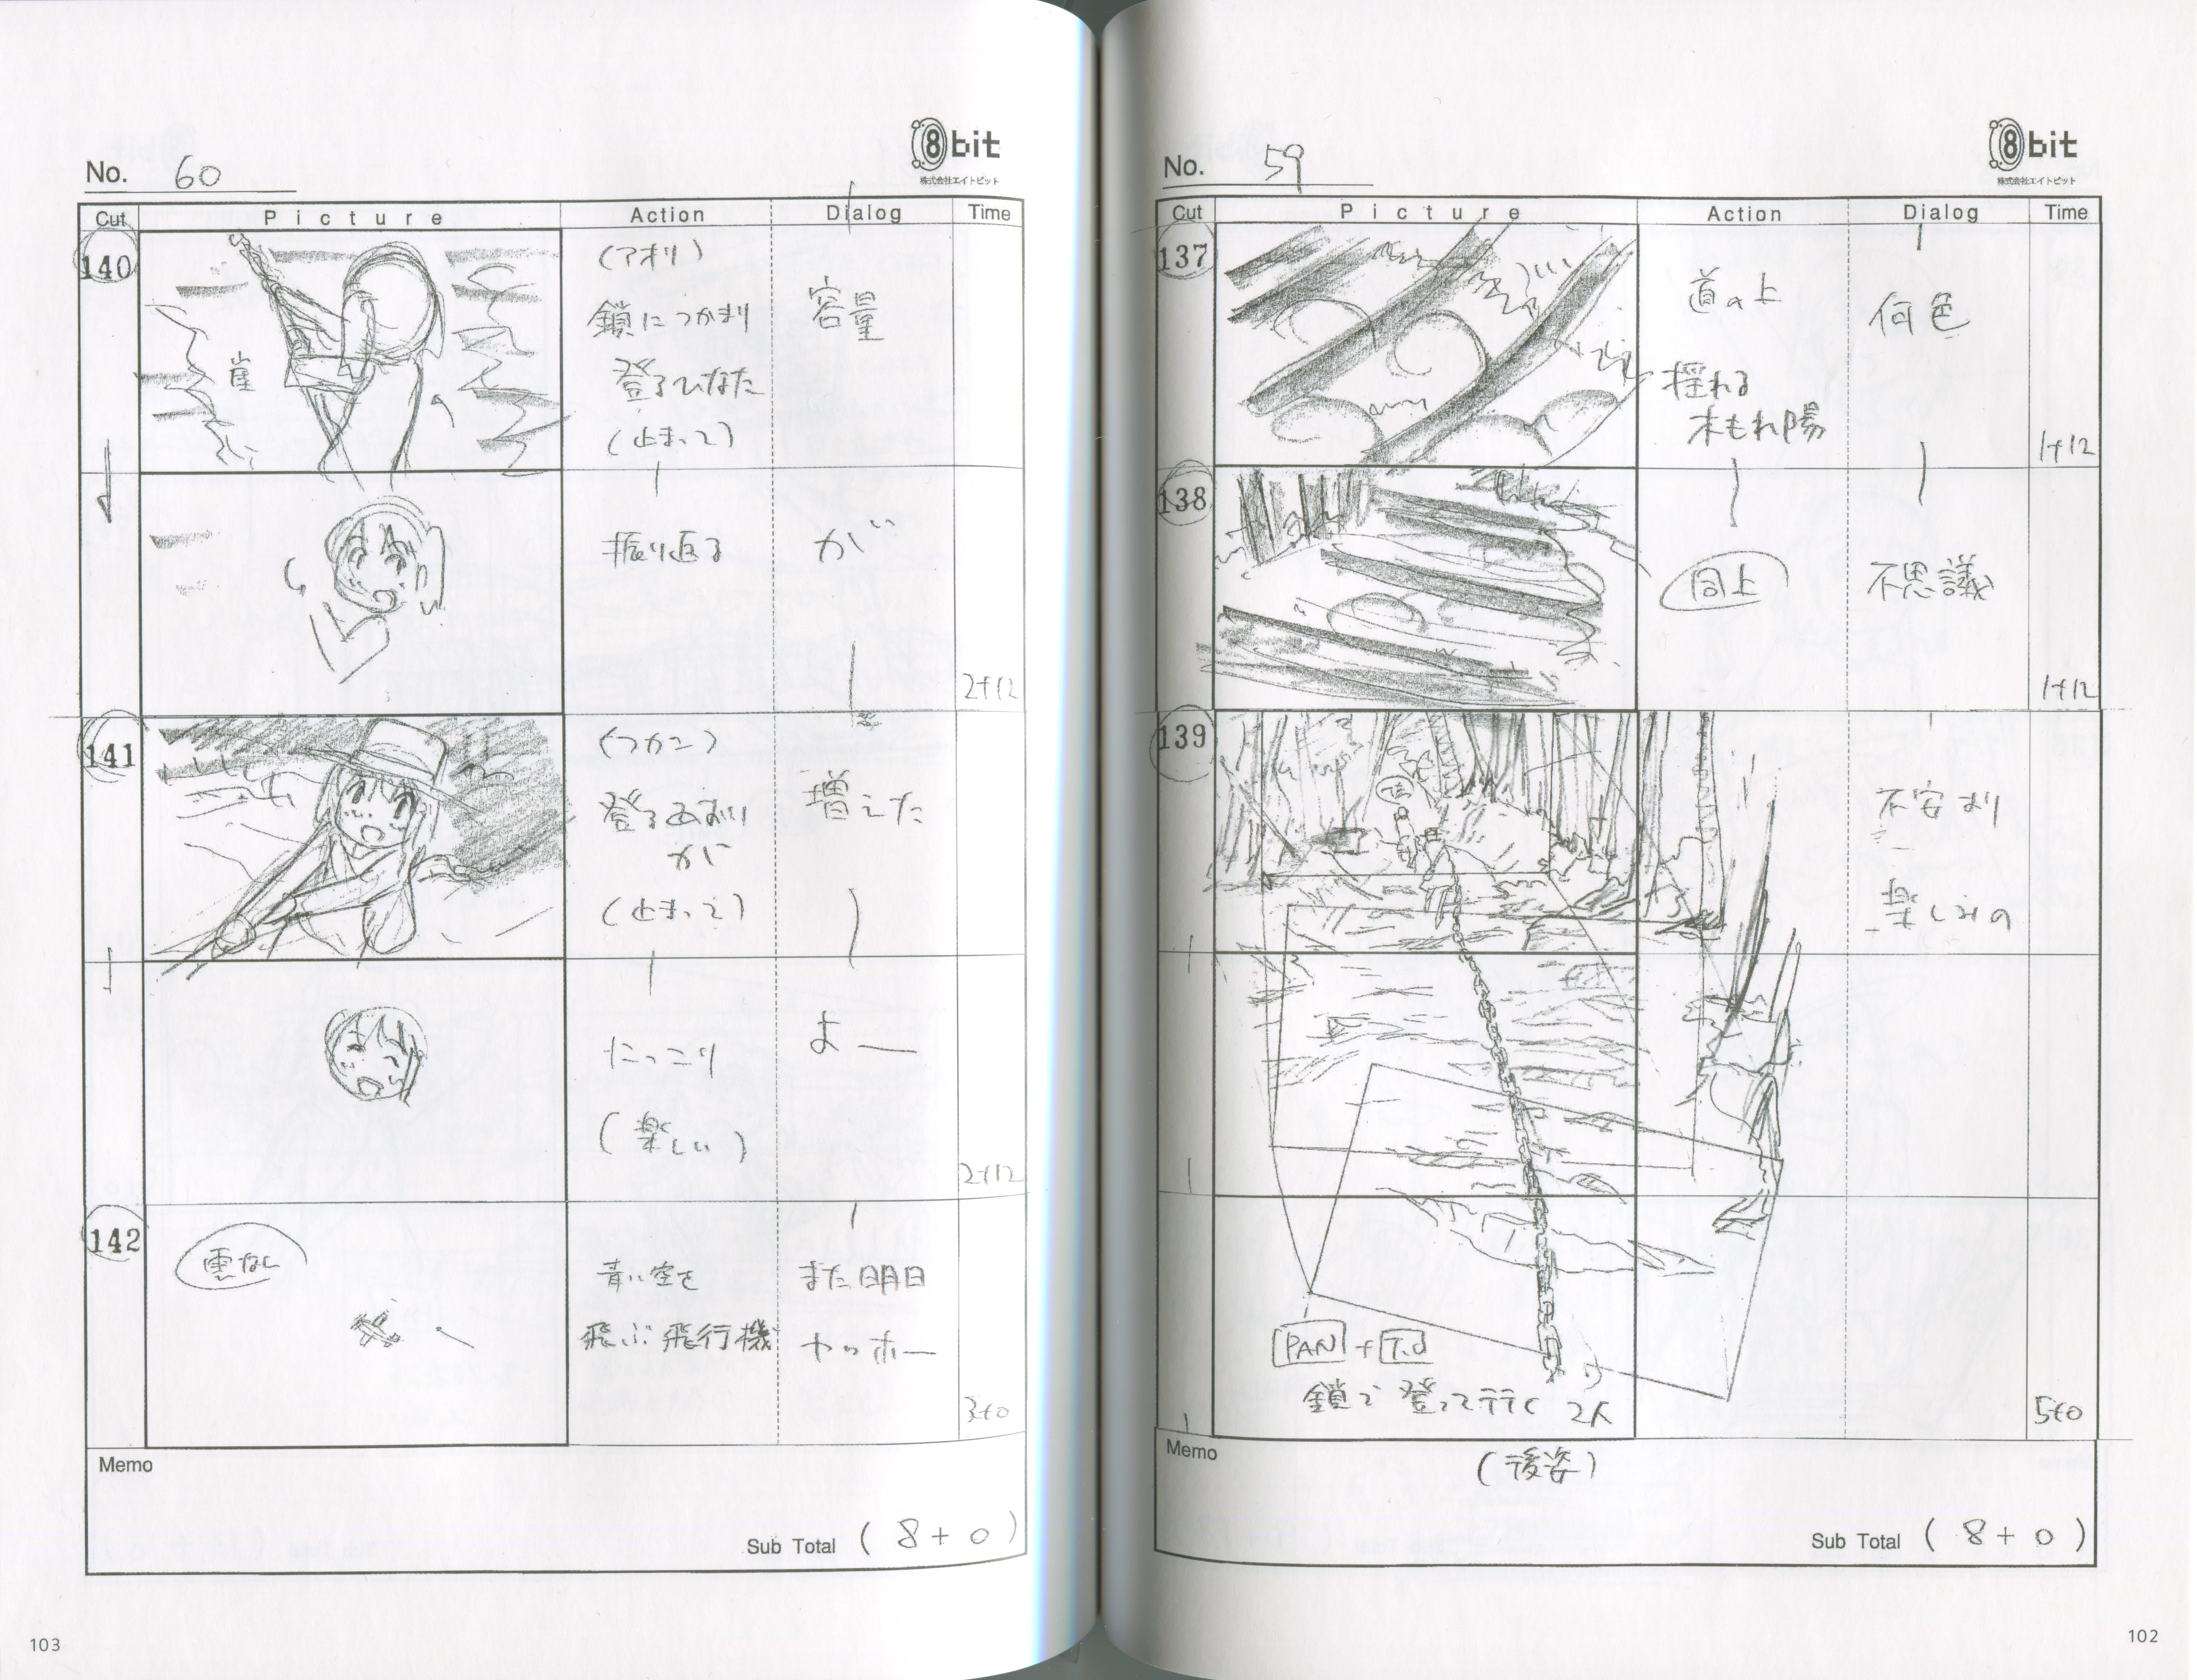 No. 59
8bit
株式会社エイトビット
Cut Picture Action Dialog Time
137
道の上
揺れる
木もれ陽
何色
1+12
138
同上
不思議
1+12
139
不安より
楽しみの
PAN + T.U
鎖で登って行く2人
(後姿)
5+0
Memo
Sub Total ( 8 + 0 )
102
No. 60
8bit
株式会社エイトビット
Cut Picture Action Dialog Time
140
崖
(アオリ)
鎖につかまり
登るひなた
(止まって)
容量
振り返る
が
2+12
141
(フカン)
登るあおい
が
(止まって)
増えた
にっこり
(楽しい)
よー
2+12
142
雲なし
青い空を
飛ぶ飛行機
また明日
ヤッホー
3+0
Memo
Sub Total ( 8 + 0 )
103